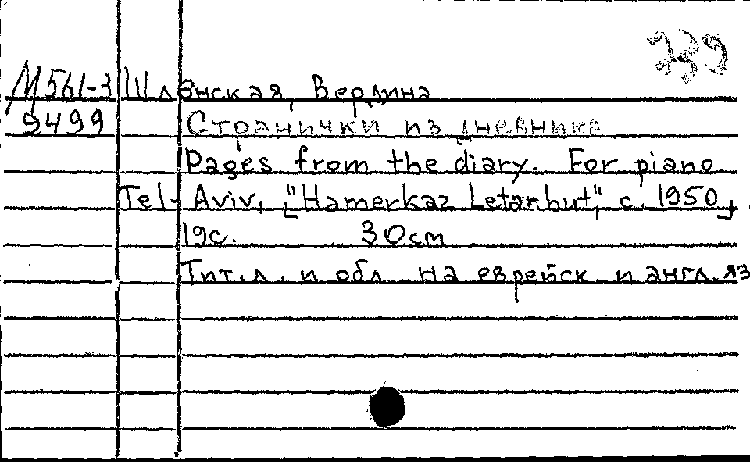 739
М561-3 Шленская, Вердина
9499 Странички из дневника
Pages from the diary. For piano
Tel-Aviv, ["Hamerkaz Letarbut", c. 1950],
19с. 30см
Тит. л. и обл. на еврейск и англ. яз